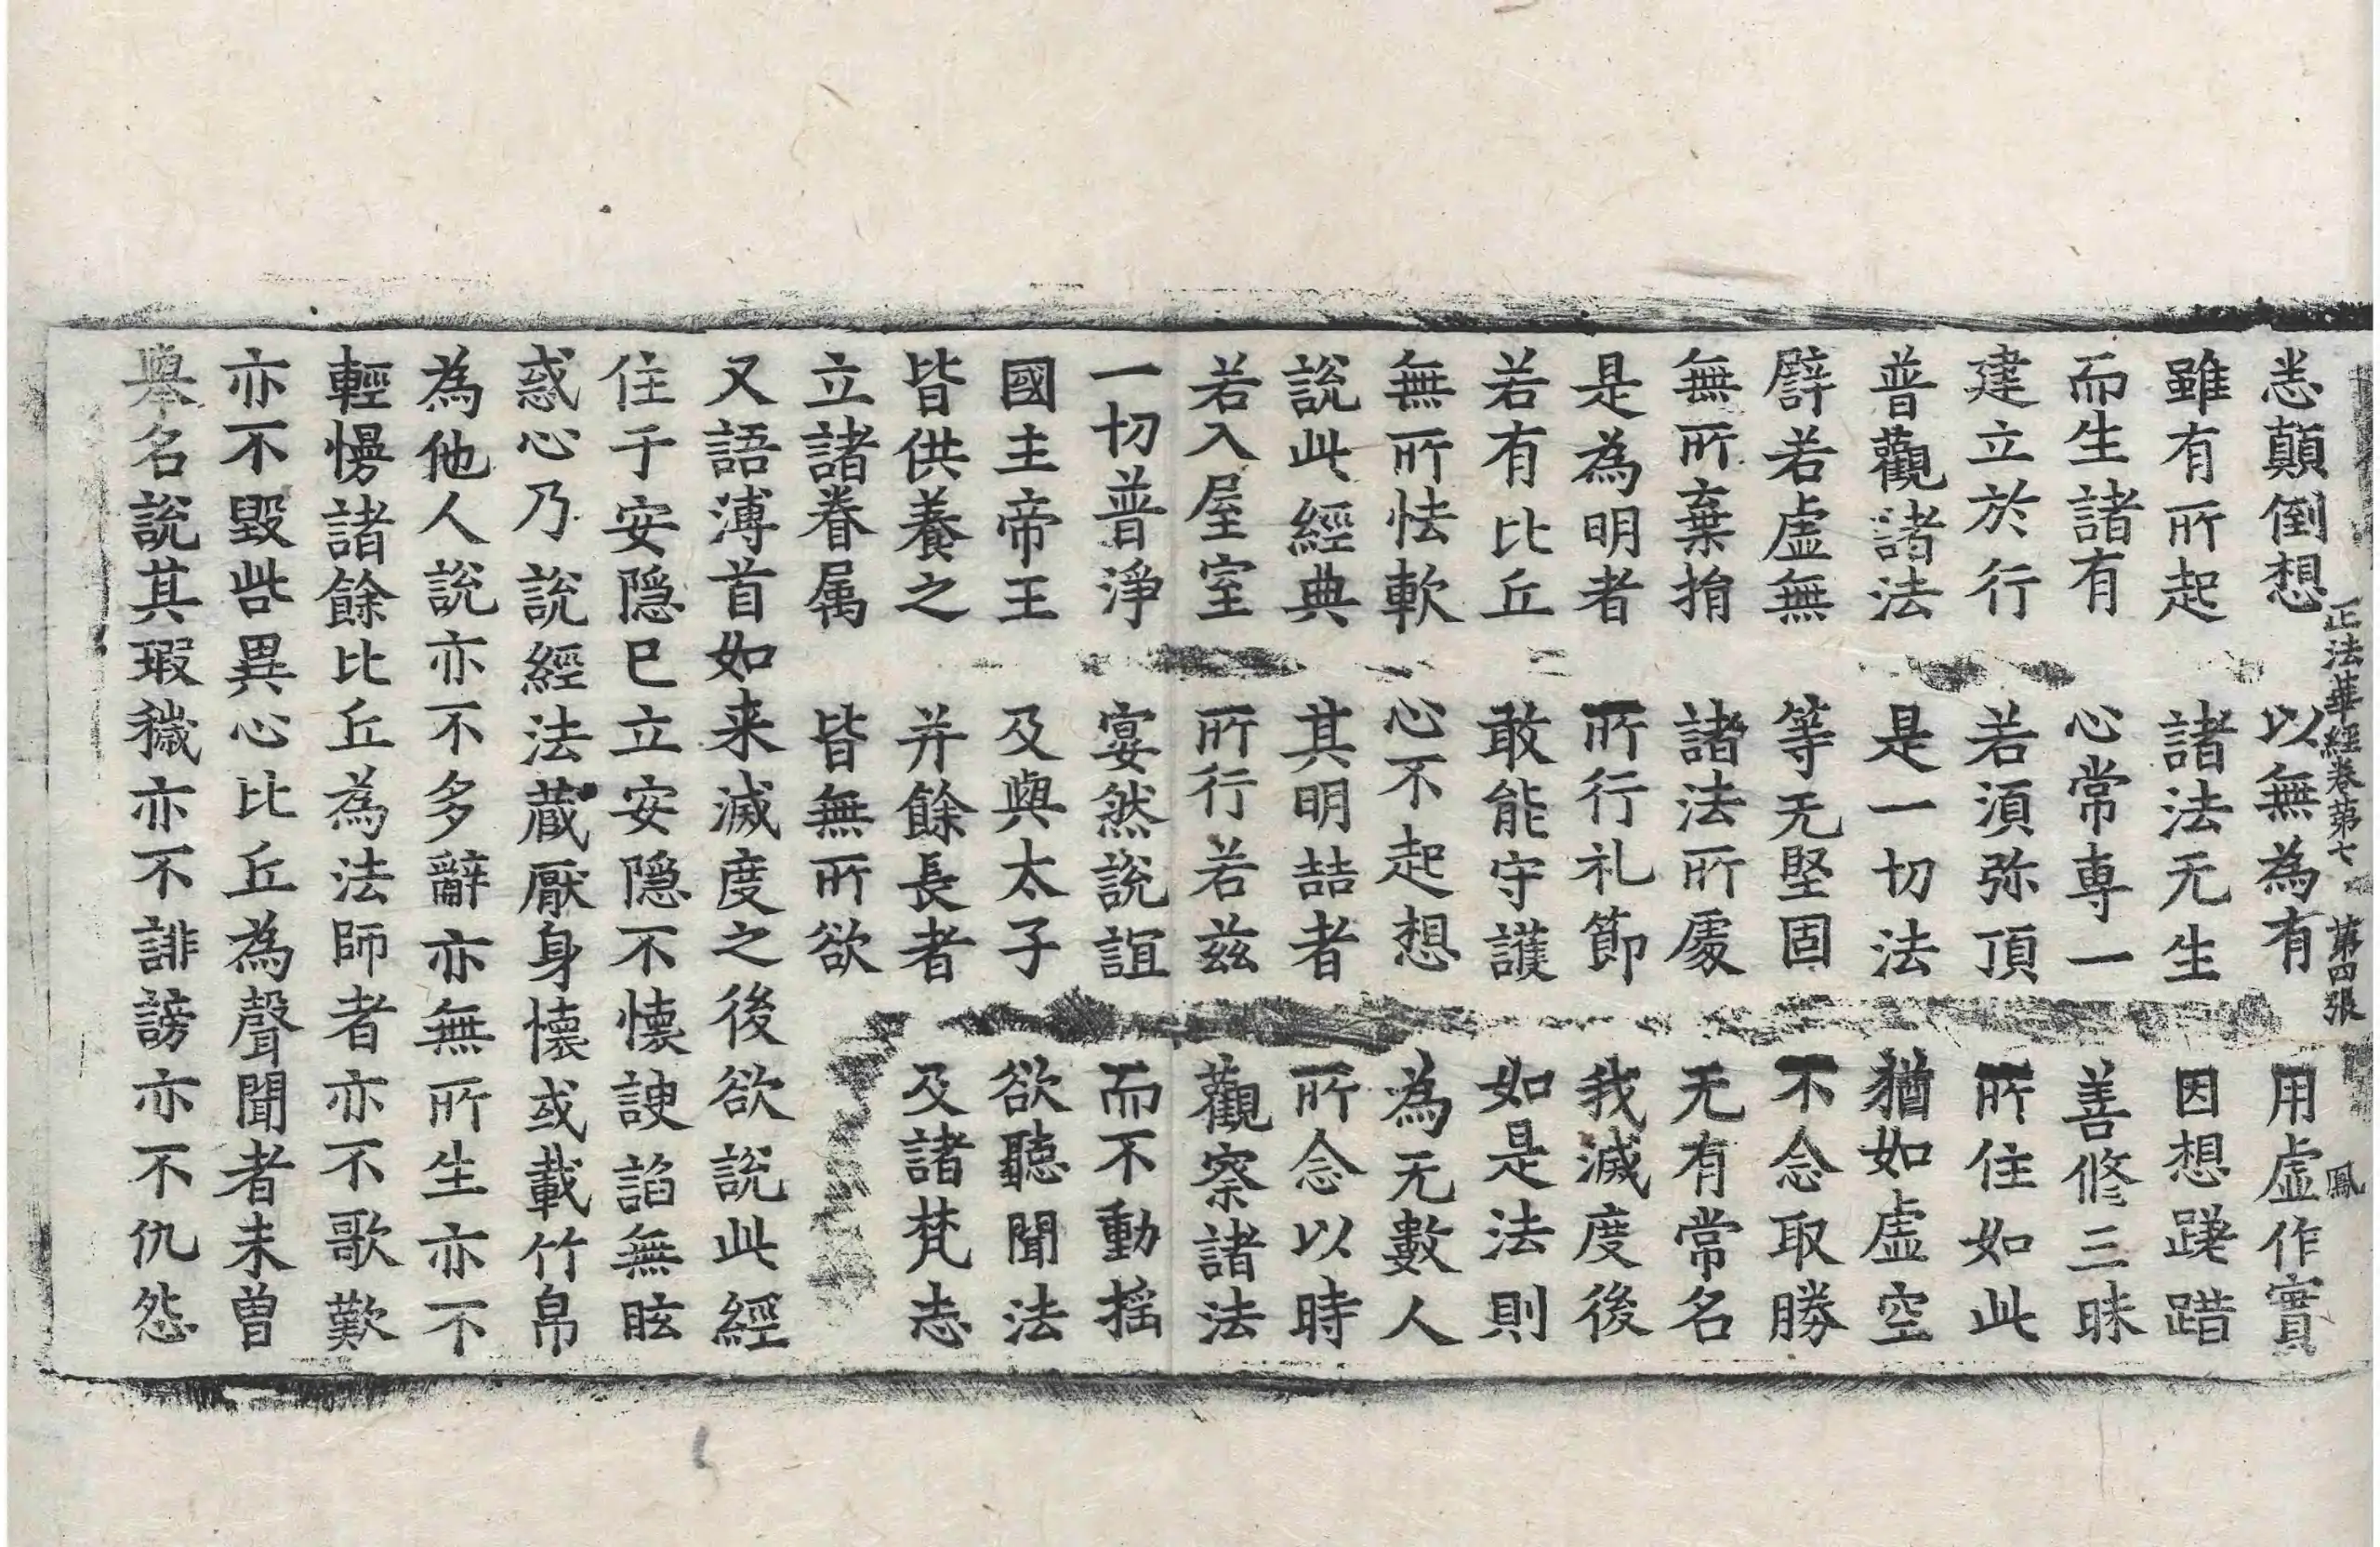 正法華經卷第七 第四張 鳳
悉顛倒想 以無為有 用虛作實
雖有所起 諸法无生 因想蹉踖
而生諸有 心常專一 善修三昧
建立於行 若須弥頂 所住如此
普觀諸法 是一切法 猶如虛空
譬若虛無 等无堅固 不念取勝
無所棄捐 諸法所處 无有常名
是為明者 所行礼節 我滅度後
若有比丘 敢能守護 如是法則
無所怯軟 心不起想 為无數人
說此經典 其明喆者 所念以時
若入屋室 所行若茲 觀察諸法
一切普淨 宴然說誼 而不動搖
國主帝王 及與太子 欲聽聞法
皆供養之 并餘長者 及諸梵志
立諸眷属 皆無所欲
又語溥首如来滅度之後欲說此經
住于安隱已立安隱不懷諛諂無眩
惑心乃說經法蔵厭身懷或載竹帛
為他人說亦不多辭亦無所生亦不
輕慢諸餘比丘為法師者亦不歌歎
亦不毀呰異心比丘為聲聞者未曾
舉名說其瑕穢亦不誹謗亦不仇怨